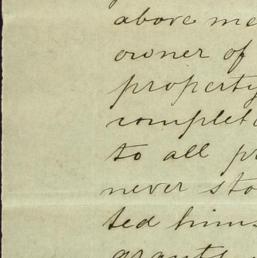 above me
owner of
property
complet
to all p
never sto
ted hims
grants